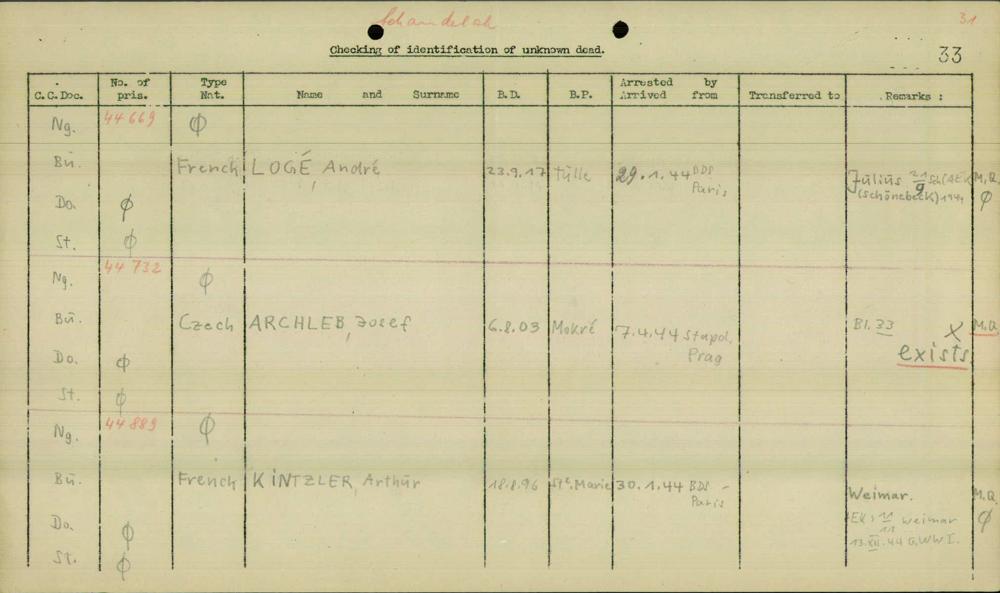 Schandelah
31
Checking of identification of unknown dead.
33
C.C.Doc. No. of pris. Type Nat. Name and Surname B.D. B.P. Arrested by Arrived from Transferred to Remarks :
Ng. 44 669 ϕ
Bu. French LOGÉ, André 23.9.17 Tülle 29.1.44 BDS Paris Julius M.Q.
(Schönebeck) 1944 ϕ
Do. ϕ
St. ϕ
Ng. 44 732 ϕ
Bu. Czech ARCHLEB, Josef 6.8.03 Mokré 7.4.44 Stapol. Prag Bl. 33 X M.Q.
exists
Do. ϕ
St. ϕ
Ng. 44 889 ϕ
Bu. French KINTZLER, Arthur 18.8.96 Ste. Marie 30.1.44 BDS - Paris Weimar. M.Q.
Do. ϕ Weimar ϕ
13.XII.44 G.WW I.
St. ϕ